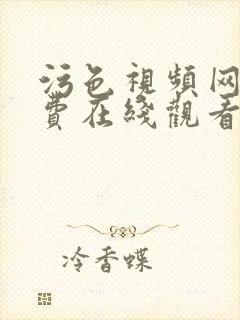 污色視頻网
費在綫觀看
冷香蝶